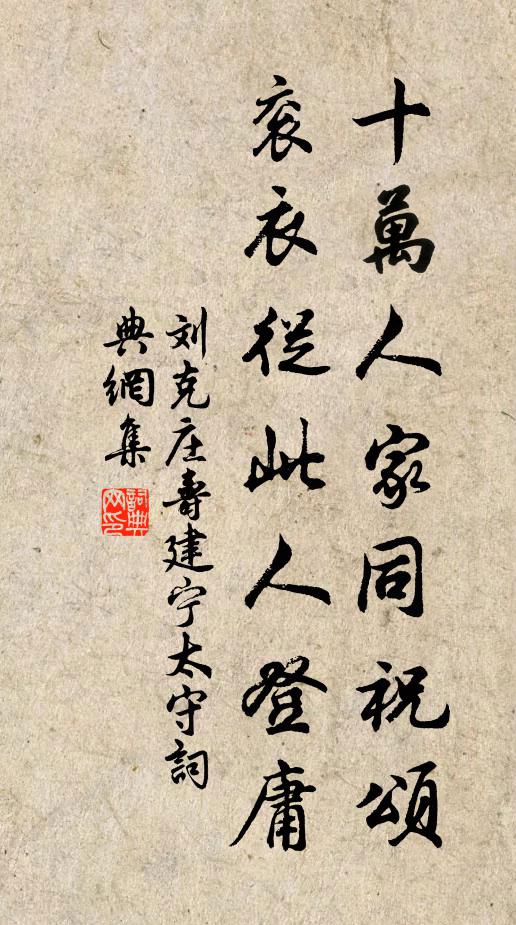 十萬人家同祝頌
袞衣從此人登庸
刘克庄壽建宁太守詞
典網集
詞典
网印